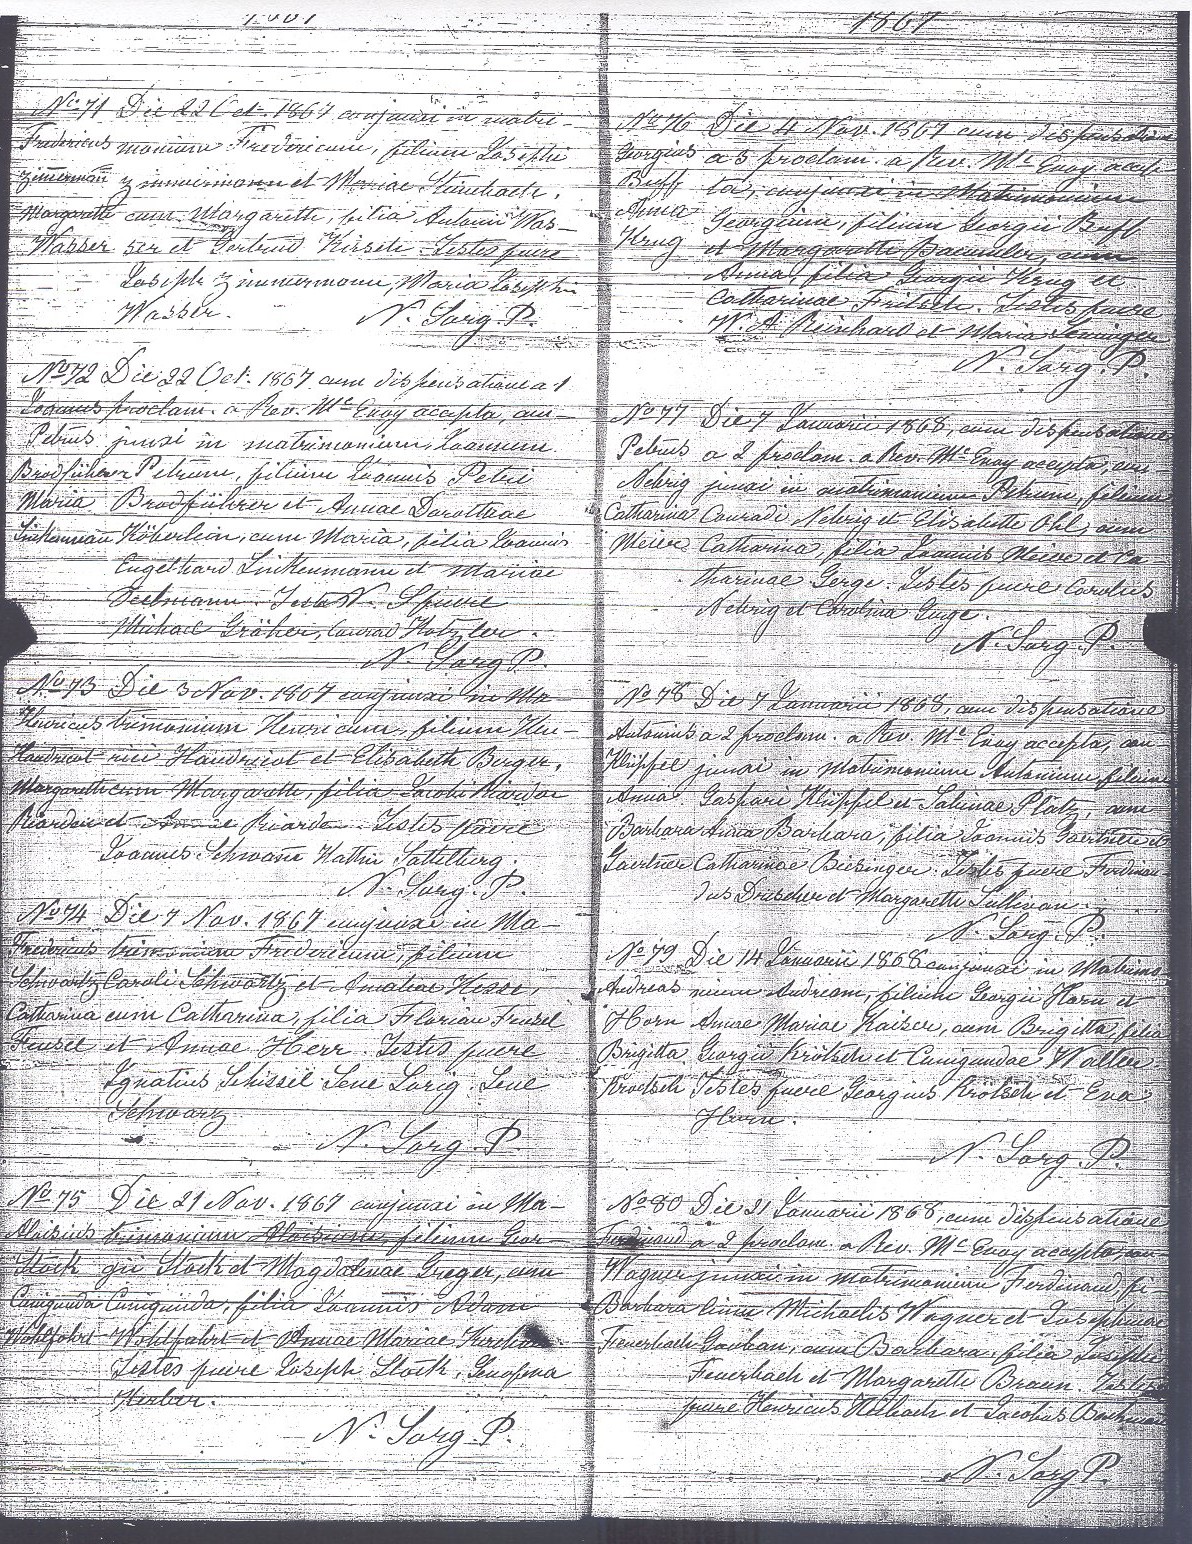 1867
No 71 Die 22 Oct. 1867 conjunxi in matri-
Fredericus monium Fredericum, filium Josephi
Zimmermann Zimmermann et Mariae Steinbach,
Margaretha cum Margaretha, filia Antonii Was-
Wasser ser et Gertrud Kirsch. Testes fuere
Joseph Zimmermann, Maria Josephin
Wasser. N. Sorg. P.
No 72 Die 22 Oct. 1867 cum dispensatione a 1
Joannes proclam. a Rev. Mc Evoy accepta, con-
Petrus junxi in matrimonium Joannem
Brodführer Petrum, filium Joannis Petri
Maria Brodführer et Annae Dorotheae
Linkenmann Köberlein, cum Maria, filia Joannis
Engelhard Linkenmann et Mariae
Seelmann. Testes fuere
Michael Gröher, Conrad Hotzler.
N. Sorg P.
No 73 Die 3 Nov. 1867 conjunxi in Ma-
Henricus trimonium Henricum, filium Hen-
Haudricot rici Haudricot et Elisabeth Burger,
Margareth cum Margaretha, filia Jacobi Riardon
Riardon et Annae Riardon. Testes fuere
Joannes Schwann Kathn Sattelberg.
N. Sorg. P.
No 74 Die 7 Nov. 1867 conjunxi in Ma-
Fredericus trimonium Fredericum, filium
Schwartz Caroli Schwartz et Amaliae Hesse,
Catharina cum Catharina, filia Florian Feusel
Feusel et Annae Herr. Testes fuere
Ignatius Schissel Lene Lorig. Lene
Schwartz
N. Sorg. P.
No 75 Die 21 Nov. 1867 conjunxi in Ma-
Aloisius trimonium Aloisium, filium Geor-
Stock gii Stock et Magdalenae Greger, cum
Cunigunda Cunigunda, filia Joannis Adam
Wohlfahrt Wohlfahrt et Annae Mariae
Testes fuere Joseph Stock, Genofeva
Kerber.
N. Sorg. P.
1867
No 76 Die 4 Nov. 1867 cum dispensatione
Georgius a 3 proclam. a Rev. Mc Evoy accep-
Buff ta, conjunxi in Matrimonium
Anna Georgium, filium Georgii Buff
Krug et Margaretha Baeumler, cum
Anna, filia Georgii Krug et
Catharinae Fritsch. Testes fuere
W. A. Reinhard et Maria Leninger
N. Sorg. P.
No 77 Die 7 Januarii 1868, cum dispensatione
Petrus a 2 proclam. a Rev. Mc Evoy accepta, con
Nehrig junxi in matrimonium Petrum, filium
Catharina Conradi Nehrig et Elisabetha Ohl, cum
Meier Catharina, filia Joannis Meier et Ca-
tharinae Gerge. Testes fuere Carolus
Nehrig et Carolina Guge.
N. Sorg. P.
No 78 Die 7 Januarii 1868, cum dispensatione
Antonius a 2 proclam. a Rev. Mc Evoy accepta, con
Klüpfel junxi in Matrimonium Antonium, filium
Anna Gaspari Klüpfel et Sabinae Platz, cum
Barbara Anna Barbara, filia Joannis Gaertner et
Gaertner Catharinae Beisinger. Testes fuere Ferdinan-
dus Drescher et Margaretha Sullivan.
N. Sorg. P.
No 79 Die 14 Januarii 1868 conjunxi in Matrimo-
Andreas nium Andream, filium Georgii Horn et
Horn Annae Mariae Kaiser, cum Brigitta, filia
Brigitta Georgii Krötsch et Cunigundae Walter.
Kroetsch Testes fuere Georgius Krötsch et Eva
Horn.
N. Sorg. P.
No 80 Die 21 Januarii 1868, cum dispensatione
Ferdinand a 2 proclam. a Rev. Mc Evoy accepta, con-
Wagner junxi in matrimonium Ferdinand, fi-
Barbara lium Michaelis Wagner et Josephinae
Feuerbach Gauban, cum Barbara, filia Josephi
Feuerbach et Margaretha Braun. Testes
fuere Henricus Hebach et Jacobus
N. Sorg P.